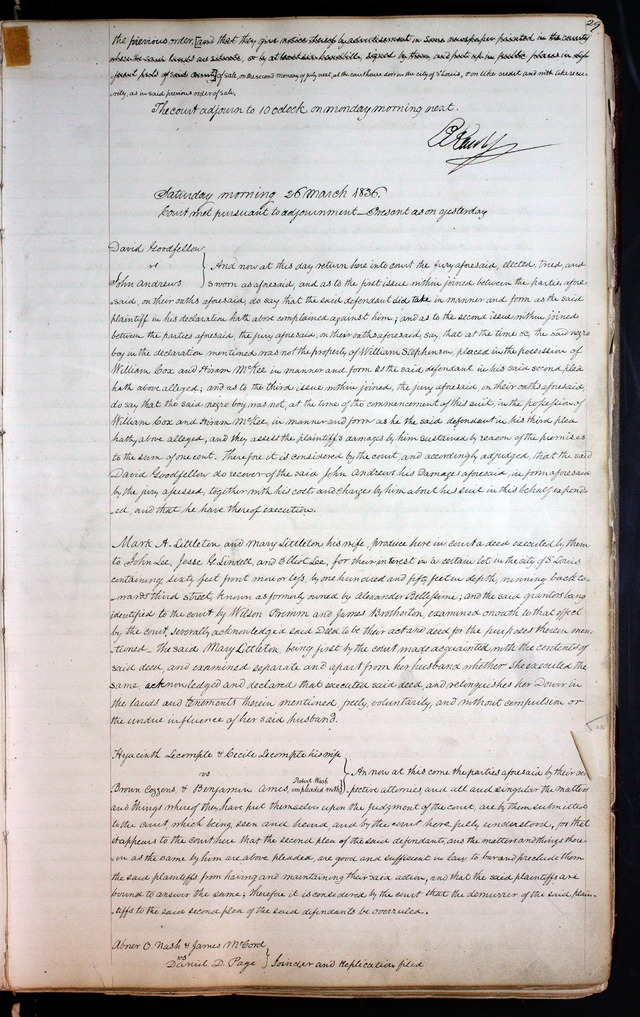 29
the previous order, [and that they give notice thereof by advertisement in some newspaper printed in the county
where the said lands are situate, or by at least six handbills, signed by them, and post up in public places in dif
ferent parts of said county] of sale, on the second monday of July next, at the court house door in the city of St Louis, & on like credit and with like secu
rity, as in said previous order of sale.
The court adjourn to 10 oclock on monday morning next.
Saturday morning 26 March 1836.
Court met pursuant to adjournment – Present as on yesterday
David Goodfellow
vs } And now at this day return here into court the jury aforesaid, elected, tried, and
John Andrews sworn as aforesaid, and as to the first issue within joined between the parties afore-
said, on their oaths aforesaid, do say that the said defendant did take in manner and form as the said
plaintiff in his declaration hath above complained against him; and as to the second issue within joined
between the parties aforesaid, the jury aforesaid, on their oaths aforesaid, say, that at the time &c, the said negro
boy in the declaration mentioned was not the property of William Stephenson placed in the possession of
William Cox and Hiram McKee in manner and form as the said defendant in his said second plea
hath above alleged; and as to the third issue within joined, the jury aforesaid, on their oaths aforesaid,
do say that the said negro boy was not, at the time of the commencement of this suit, in the possession of
William Cox and Hiram McKee, in manner and form as he the said defendant in his third plea
hath, above alleged, and they assess the plaintiff's damages by him sustained by reason of the premises
to the sum of one cent. Therefore it is considered by the court, and accordingly adjudged, that the said
David Goodfellow do recover of the said John Andrews his Damages aforesaid, in form aforesaid
by the jury assessed, together with his cost and charges by him about his suit in this behalf expend-
-ed, and that he have thereof execution.
Mark A. Littleton and Mary Littleton, his wife, produce here in court a deed executed by them
to John Lee, Jesse G. Lindell, and Elliot Lee, for their interest in a certain lot in the city of St Louis
containing sixty feet front more or less, by one hundred and fifty feet in depth, running back to-
wards third street, known as formerly owned by Alexander Bellissime; and the said grantors being
identified to the court by Wilson Primm and James Brotherton, examined on oath to that effect
by the court, severally acknowledged said Deed to be their act and deed for the purposes therein men-
tioned – the said Mary Littleton, being first by the court made acquainted with the contents of
said deed, and examined separate and apart from her husband whether she executed the
same acknowledged and declared that executed said deed, and relinquishes her Dower in
the lands and tenements therein mentioned, freely, voluntarily, and without compulsion or
the undue influence of her said husband.
Hyacinth Lecompte & Cecile Lecompte his wife
vs } An now at this come the parties aforesaid by their res
Brown Cozzens, & Benjamin Ames, Robert Wash impleaded with pective attornies and all and singular the matters
and things whereof they have put themselves upon the judgment of the court, are by them submitted
to the court, which being seen and heard, and by the court here fully understood, for that
it appears to the court here that the second plea of the said defendants, and the matters and things there-
in as the same by him are above pleaded, are good and sufficient in law to bar and preclude them
the said plaintiffs from having and maintaining their said action, and that the said plaintiffs are
bound to answer the same; therefore it is considered by the court that the demurrer of the said plain-
tiffs to the said second plea of the said defendants be overruled.
Abner O. Nash & James McCord
vs } Joinder and Replication filed
Daniel D. Page